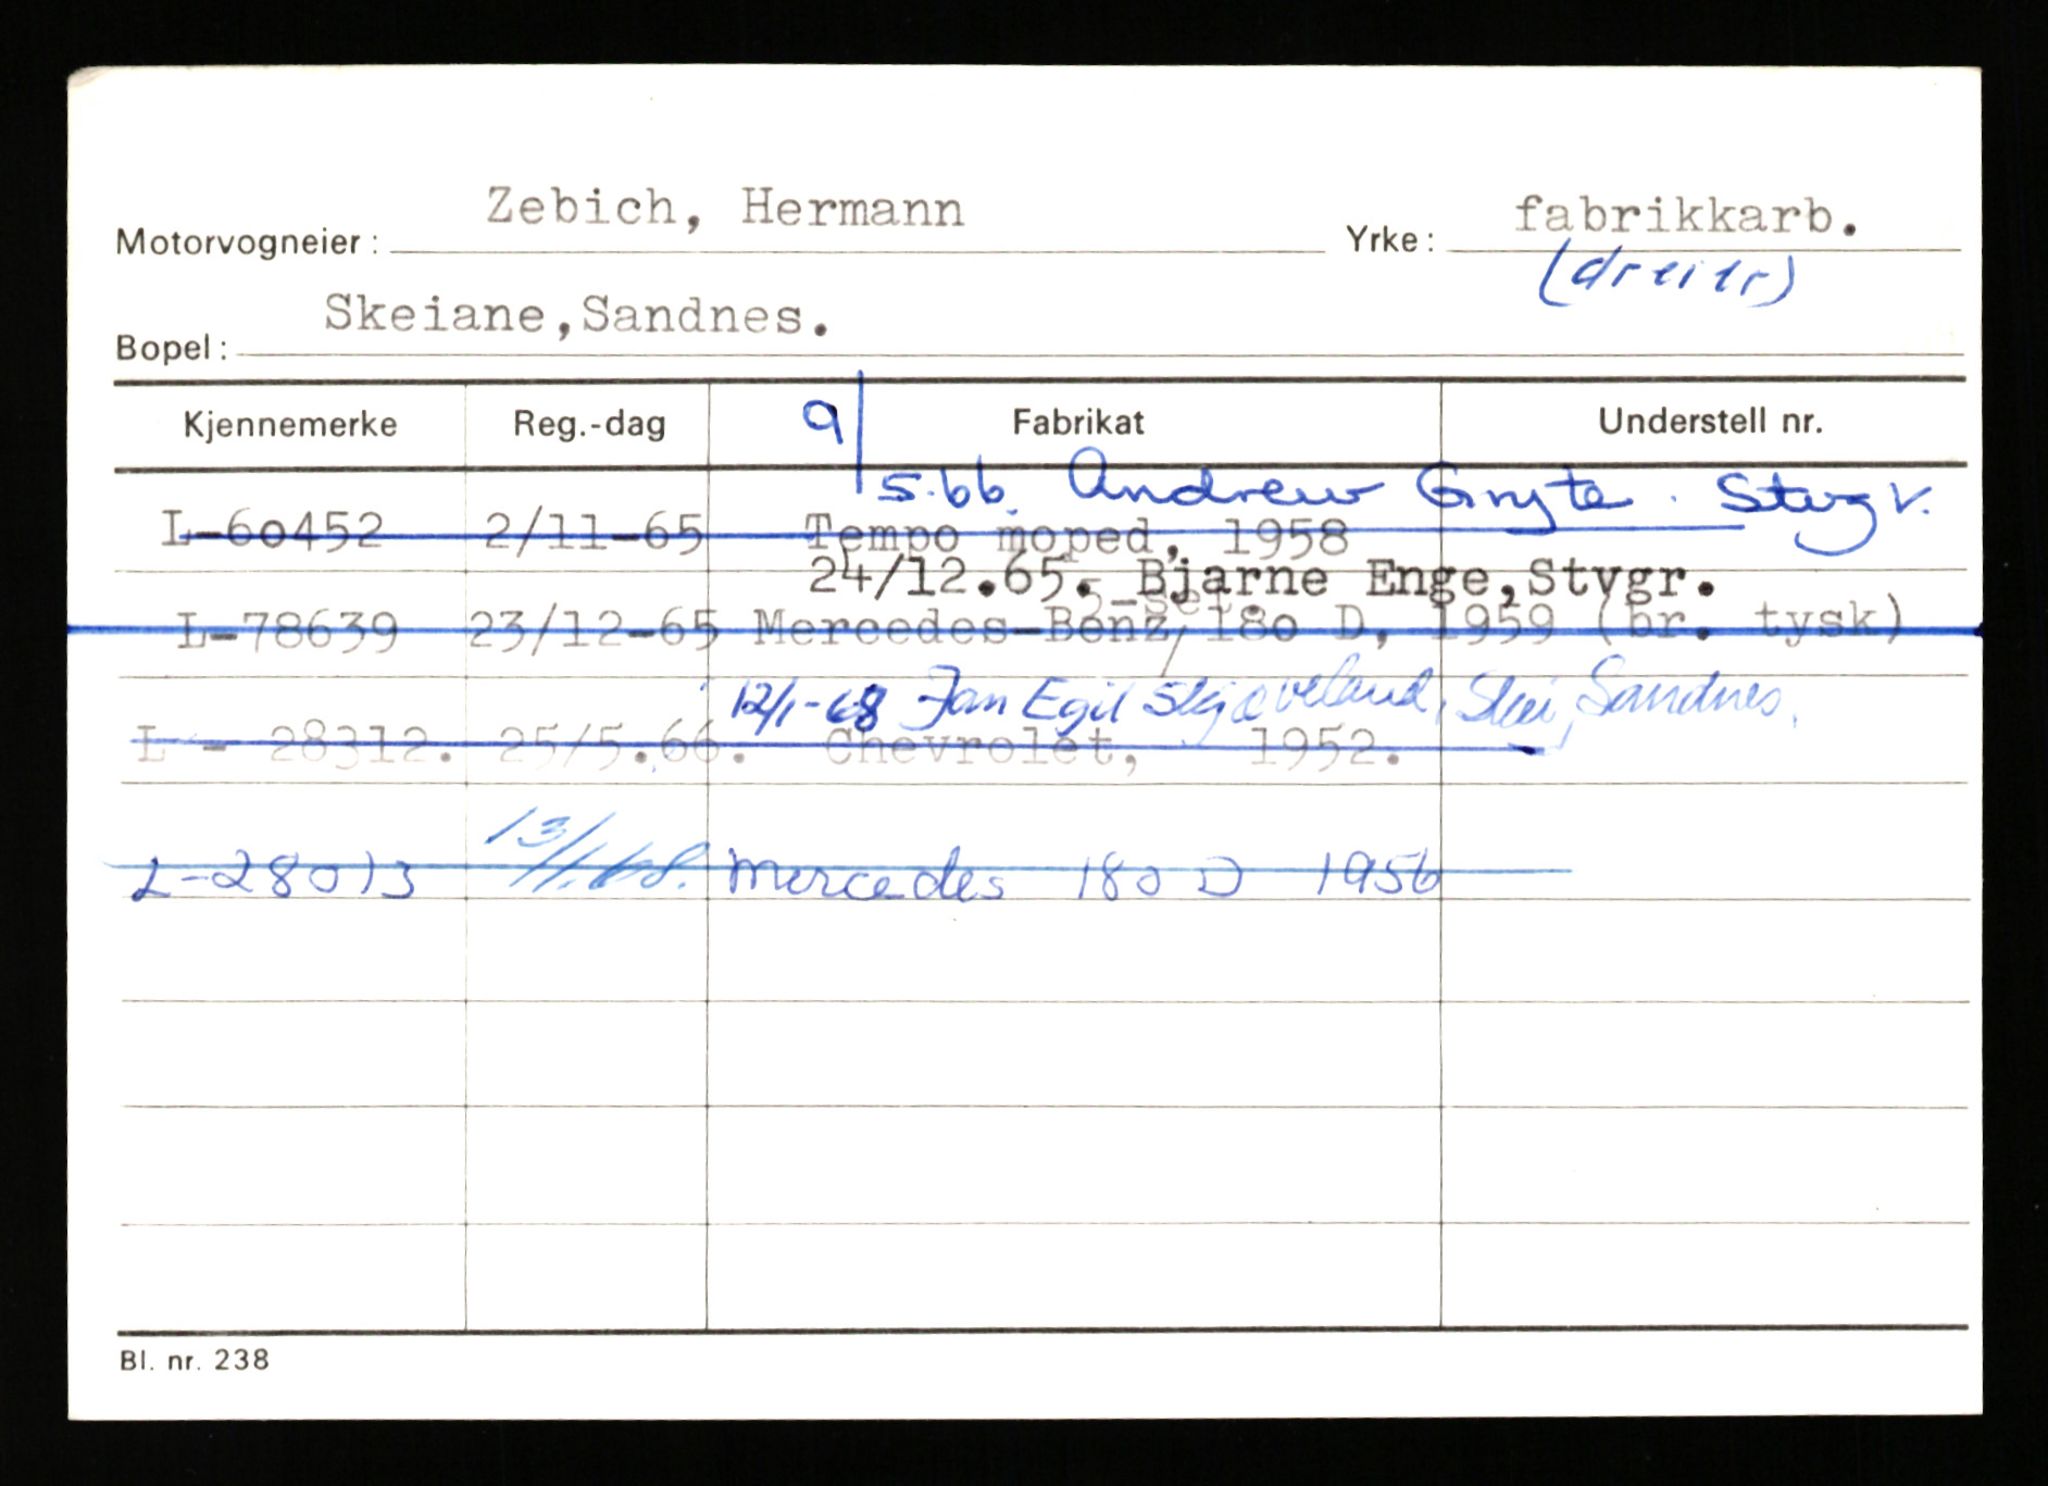 Zebich, Hermann fabrikkarb.
Motorvogneier: Yrke:
(dreier)
Skeiane,Sandnes.
Bopel:
Kjennemerke Reg.-dag Fabrikat Understell nr.
9/5.66. Andrew Gryte. Stvg v.
L-60452 2/11-65 Tempo moped, 1958
24/12.65. Bjarne Enge,Stvgr.
5-set.
L-78639 23/12-65 Mercedes-Benz, 180 D, 1959 (br. tysk)
12/1-68 Jan Egil Skjæveland, Skei, Sandnes.
L - 28312. 25/5.66. Chevrolet, 1952.
L-28013 13/1.68. Mercedes 180 D 1956
Bl. nr. 238